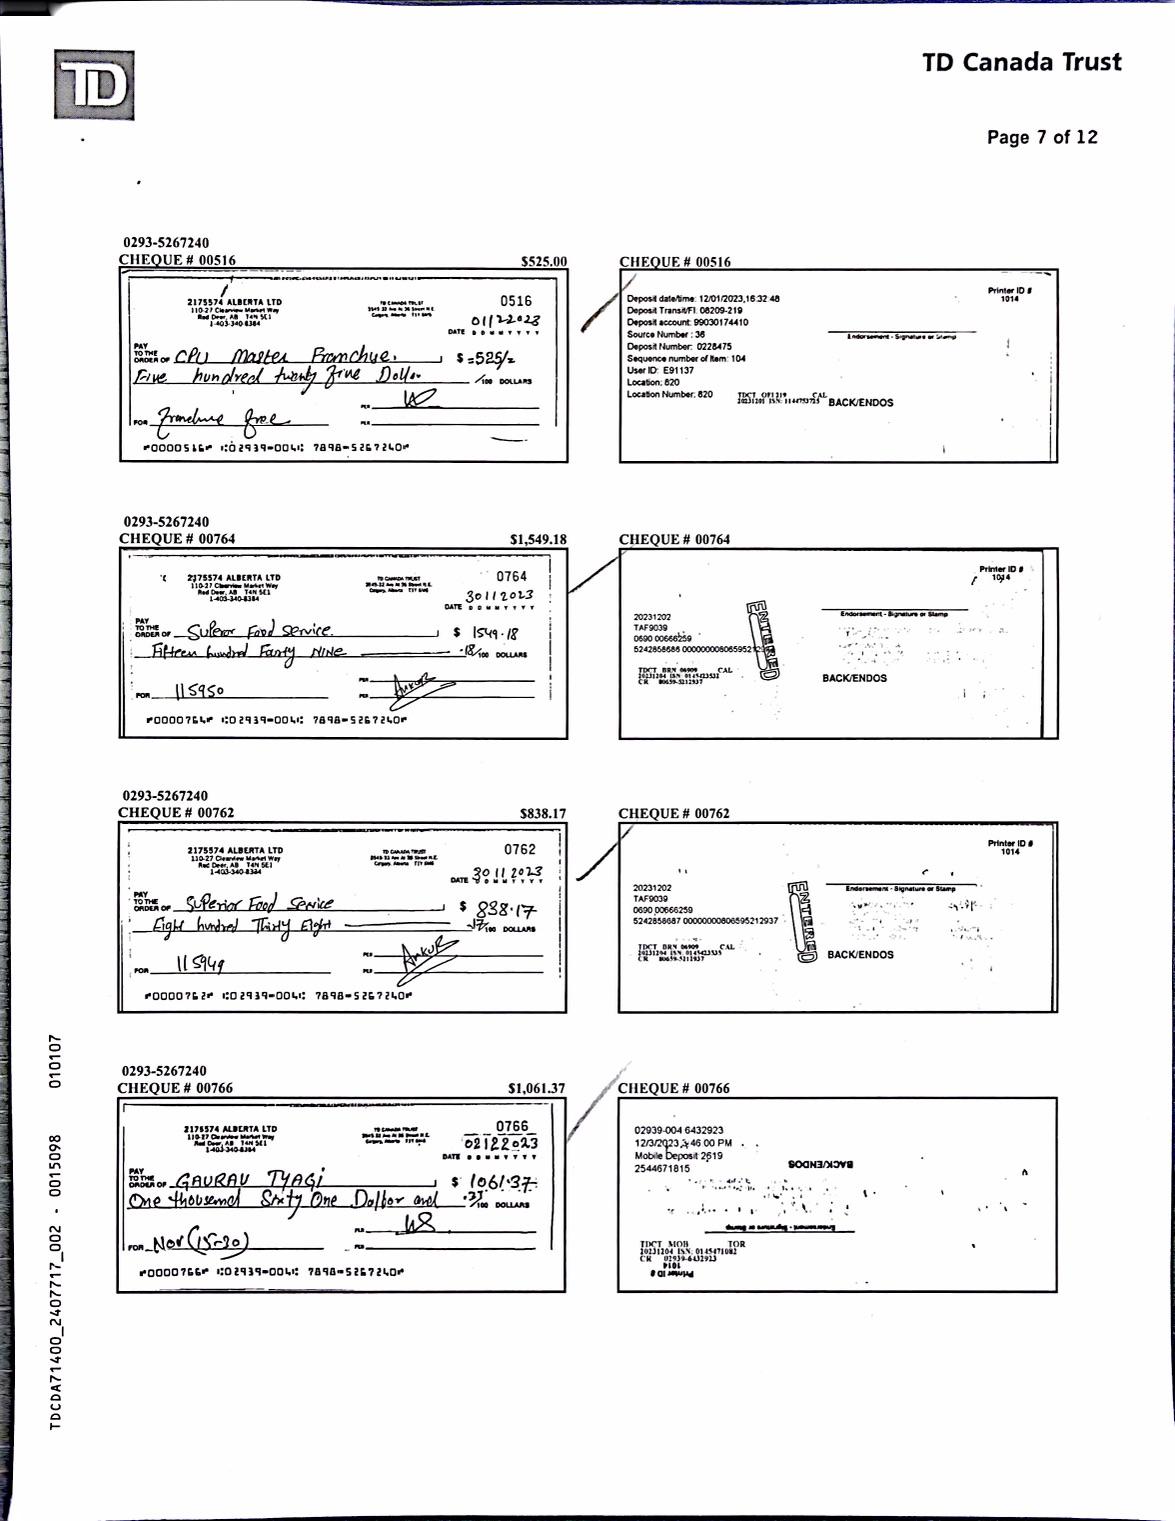 TD
TD Canada Trust
Page 7 of 12
0293-5267240
CHEQUE # 00516 $525.00
2175574 ALBERTA LTD
110-27 Clearview Market Way
Red Deer, AB T4N 5E1
1-403-340-8384
TD CANADA TRUST
0516
01122023
DATE D D M M Y Y Y Y
PAY
TO THE
ORDER OF CPU Master Franchye. $ =525/=
Five hundred twenty five Dollar /100 DOLLARS
PER
PER
FOR Franchise fee
⑈0000516⑈ ⑆02939⑉004⑆ 7898⑉5267240⑈
CHEQUE # 00516
Printer ID #
1014
Deposit date/time: 12/01/2023,16:32:48
Deposit Transit/FI: 08209-219
Deposit account: 99030174410
Source Number : 36
Deposit Number: 0228475
Sequence number of Item: 104
User ID: E91137
Location: 820
Location Number: 820
Endorsement - Signature or Stamp
TDCT OFI 219 CAL
20231201 ISN: 1144753725
BACK/ENDOS
0293-5267240
CHEQUE # 00764 $1,549.18
2175574 ALBERTA LTD
110-27 Clearview Market Way
Red Deer, AB T4N 5E1
1-403-340-8384
TD CANADA TRUST
0764
30112023
DATE D D M M Y Y Y Y
PAY
TO THE
ORDER OF Superor Food Service. $ 1549.18
Fifteen hundred Fourty NINE .18/100 DOLLARS
PER
PER Ankur
FOR 115950
⑈0000764⑈ ⑆02939⑉004⑆ 7898⑉5267240⑈
CHEQUE # 00764
Printer ID #
1014
Endorsement - Signature or Stamp
20231202
TAF9039
0690 00666259
ENTERED
TDCT BRN 06909 CAL
20231204 ISN: 0145423532
CR 80659-5212937
BACK/ENDOS
0293-5267240
CHEQUE # 00762 $838.17
2175574 ALBERTA LTD
110-27 Clearview Market Way
Red Deer, AB T4N 5E1
1-403-340-8384
TD CANADA TRUST
0762
30112023
DATE D D M M Y Y Y Y
PAY
TO THE
ORDER OF Superior Food Service $ 838.17
Eight hundred Thirty Eight .17/100 DOLLARS
PER Ankur
PER
FOR 115949
⑈0000762⑈ ⑆02939⑉004⑆ 7898⑉5267240⑈
CHEQUE # 00762
Printer ID #
1014
Endorsement - Signature or Stamp
20231202
TAF9039
0690 00666259
5242858687 00000000806595212937
ENTERED
TDCT BRN 06909 CAL
20231204 ISN: 0145423535
CR 80659-5212937
BACK/ENDOS
0293-5267240
CHEQUE # 00766 $1,061.37
2175574 ALBERTA LTD
110-27 Clearview Market Way
Red Deer, AB T4N 5E1
1-403-340-8384
TD CANADA TRUST
0766
02122023
DATE D D M M Y Y Y Y
PAY
TO THE
ORDER OF GAURAV TYAGI $ 1061.37
One thousend Sixty One Dollar and .37/100 DOLLARS
PER
PER
FOR Nov (15-30)
⑈0000766⑈ ⑆02939⑉004⑆ 7898⑉5267240⑈
CHEQUE # 00766
02939-004 6432923
12/3/2023 46:00 PM
Mobile Deposit 2619
2544671815
BACK/ENDOS
Endorsement - Signature or Stamp
TDCT MOB TOR
20231204 ISN: 0145471082
CR 02939-6432923
1014
Printer ID #
TDCDA71400_2407717_002 - 0015098 010107